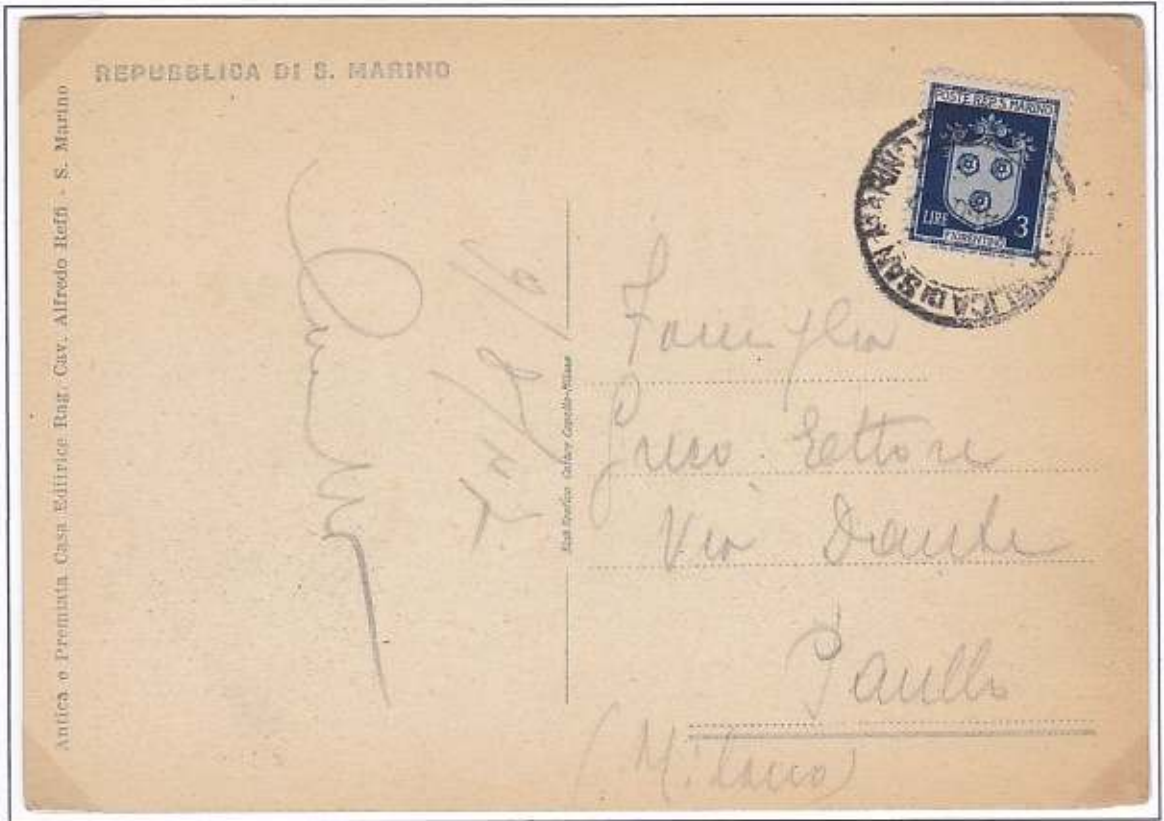 REPUBBLICA DI S. MARINO
Antica e Premiata Casa Editrice Rag. Cav. Alfredo Reffi - S. Marino
POSTE REP. S. MARINO
LIRE 3
FIORENTINO
BLICA DI SAN MARINO
Famiglia
Greco Ettore
Via Dante
Paullo
(Milano)